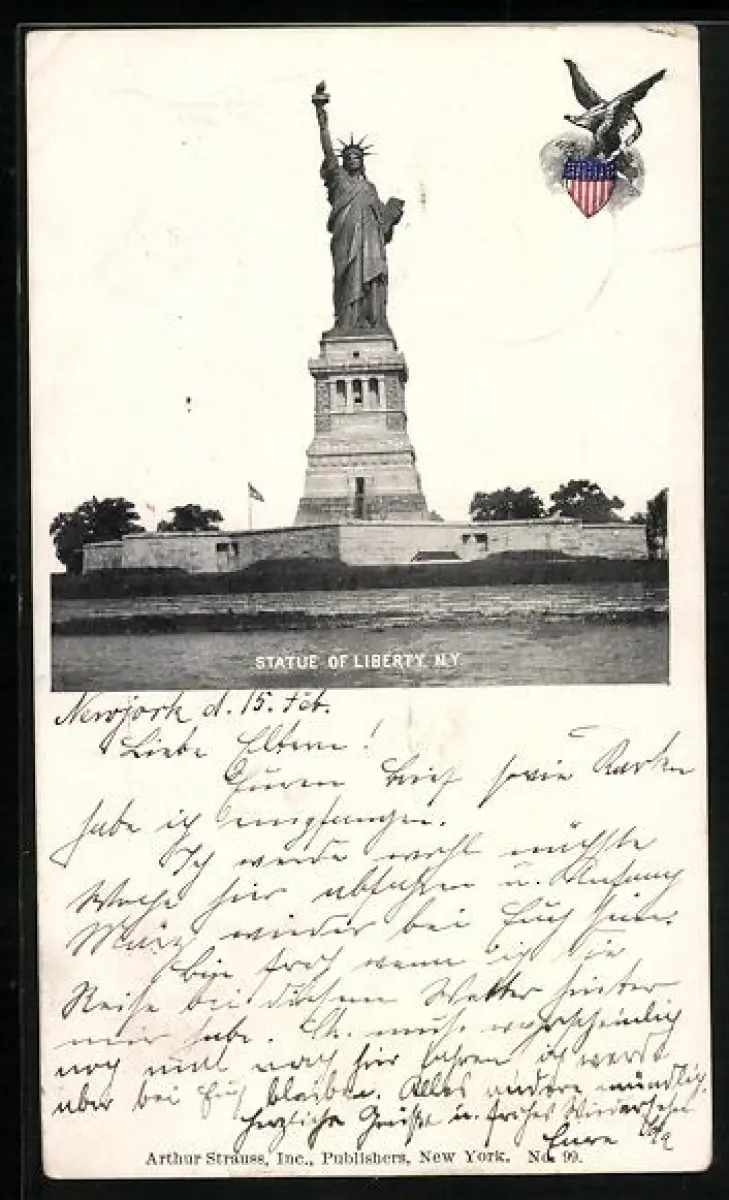 STATUE OF LIBERTY. N.Y.
Newjork d. 15. Feb.
Liebe Eltern!
Euren Brief sowie Karten
habe ich empfangen.
Ich werde wohl nächste
Woche hier abfahren u. Anfang
März wieder bei Euch sein.
Bin froh wenn ich die
Reise bei diesem Wetter hinter
mir habe. muß wahrscheinlich
noch mal nach hier fahren ich werde
aber bei Euch bleiben. Alles andere mündlich.
herzliche Grüße u. frohes Wiedersehn
Eure
Arthur Strauss, Inc., Publishers, New York. No. 99.